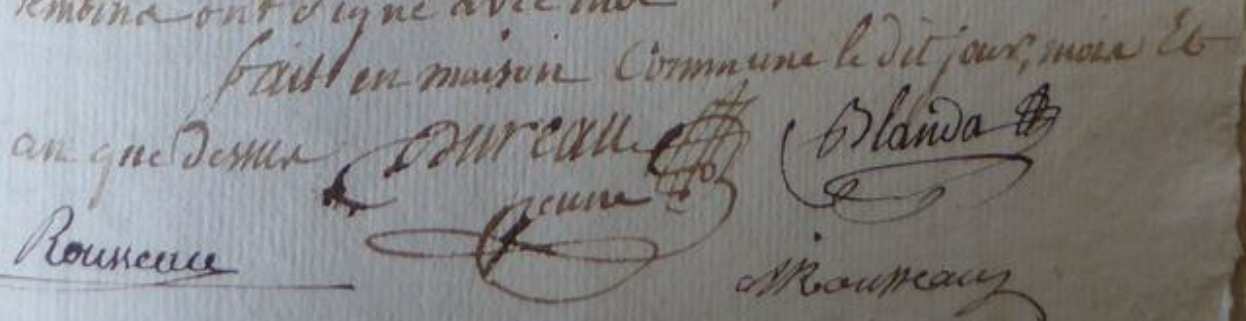 temoins ont signé avec moi
fait en maison Commune le dit jour, mois Et
an que dessus Dureau Blanda
jeune
Rousseau Rousseau